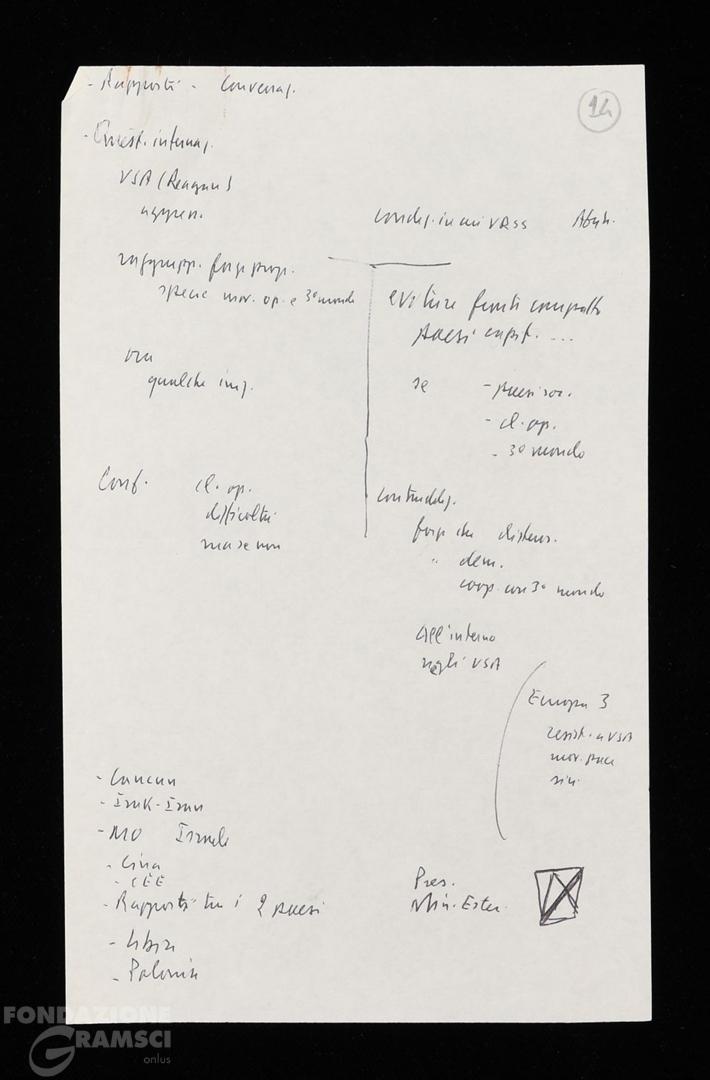 - Rapporti - Convenaz.
14
- Quest. internaz.
USA (Reagan)
aggress.
condiz. in cui URSS Afgh.
raggrupp. forze prog.
specie mov. op. e 3° mondo
evitare fronte compatto
paesi capit. ...
ora
qualche imp.
se - paesi soc.
- cl. op.
- 3° mondo
Conf. cl. op.
difficoltà
ma se non
contraddiz.
forze che distens.
" dem.
coop. con 3° mondo
all'interno
negli USA
Europa 3
resist. a USA
mov. pace
sin.
- Cancun
- Irak-Iran
- MO Israele
- Cina
- CEE
- Rapporti tra i 2 paesi
- Libia
- Polonia
Pres.
Min. Ester.
FONDAZIONE
GRAMSCI
onlus